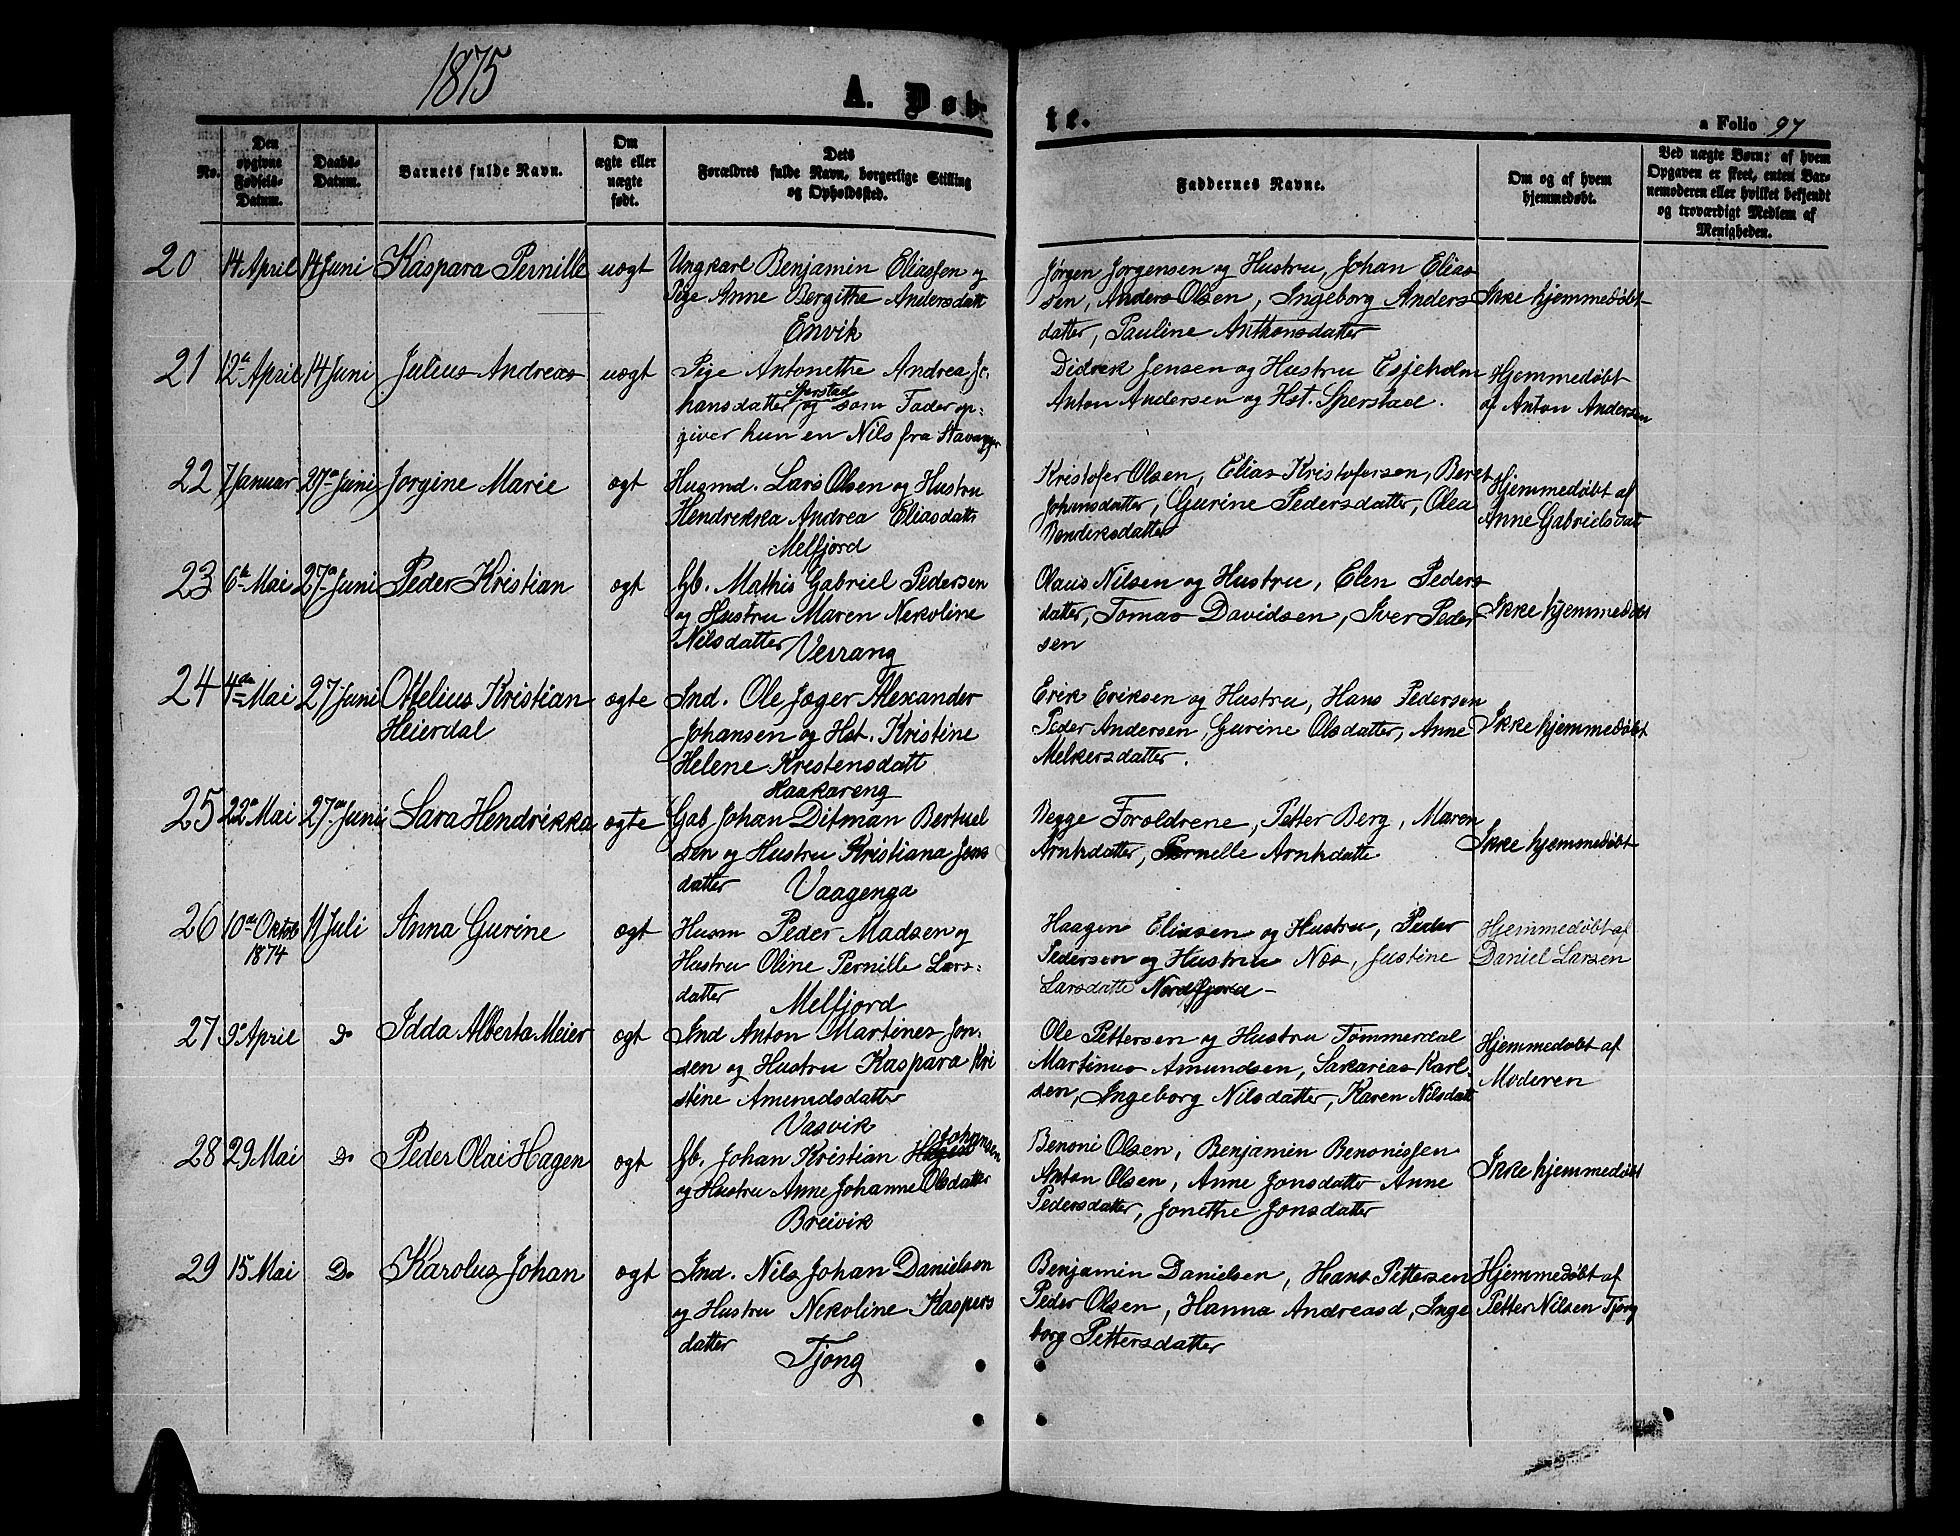 1875
A. Døb
te.
a Folio 97
No.
Den opgivne Fødsels-Datum.
Daabs-Datum.
Barnets fulde Navn.
Om ægte eller uægte født.
Dets Forældres fulde Navn, borgerlige Stilling og Opholdssted.
Faddernes Navne.
Om og af hvem hjemmedøbt.
Ved uægte Børn: af hvem Opgaven er skeet, enten Barnemoderen eller hvilket bekjendt og troværdigt Medlem af Menigheden.
20 14 April 14 Juni Kaspara Pernille uogt Ungkarl Benjamin Eliassen og
Pige Anne Bergithe Andersdatt
Envik
Jørgen Jørgensen og Hustru, Johan Elias
sen, Anders Olsen, Ingeborg Anders
datter, Pauline Anthonsdatter
Ikke hjemmedøbt
21 12te April 14 Juni Julius Andreas uogt Pige Antonethe Andrea Jo-
hansdatter Sperstad, og som Fader op-
giver hun en Nils fra Stavanger
Didrek Jensen og Hustru Esjeholm
Anton Andersen og Hst. Sperstad.
Hjemmedøbt
af Anton Andersen
22 7 Januar 27de Juni Jørgine Marie ogt Husmd. Lars Olsen og Hustru
Hendrekka Andrea Eliasdatt
Melfjord
Kristofer Olsen, Elias Kristofersen, Beret
Johansdatter, Gurine Pedersdatter, Olea
Bendiksdatter
Hjemmedøbt af
Anne Gabrielsdat
23 6te Mai 27de Juni Peder Kristian ogt Gb. Mathis Gabriel Pedersen
og Hustru Maren Nekoline
Nilsdatter Verrang
Olaus Nilsen og Hustru, Elen Peders
datter, Tomas Davidsen, Iver Peder
sen
Ikke hjemmedøbt
24 4de Mai 27 Juni Ottelius Kristian
Heierdal
ogte Ind. Ole Jæger Alexander
Johansen og Hst. Kristine
Helene Krestensdatt
Haakareng
Erik Eriksen og Hustru, Hans Pedersen
Peder Andersen, Gurine Olsdatter, Anne
Melkersdatter.
Ikke hjemmedøbt
25 22de Mai 27de Juni Sara Hendrikka ogte Gab Johan Ditman Bertuel
sen og Hustru Kristiana Jens
datter Vaagenga
Begge Foroldrene, Petter Berg, Maren
Arntsdatter, Pernelle Arntsdatte
Ikke hjemmedøbt
26 10de Oktob 11 Juli Anna Gurine ogt Husm Peder Madsen og
1874
Hustru Oline Pernille Lars-
datter Melfjord
Haagen Eliasen og Hustru, Peder
Pedersen og Hustru Nos, Justine
Larsdatte Nordfjord -
Hjemmedøbt af
Daniel Larsen
27 9de April Do Idda Alberta Meier ogt Ind Anton Martines Jon-
sen og Hustru Kaspara Kri
stine Amundsdatter
Vasvik
Ole Pettersen og Hustru Tømmerdal
Martinus Amundsen, Sakarias Karl-
sen, Ingeborg Nilsdatter, Karen Nilsdatt
Hjemmedøbt af
Moderen
28 29 Mai Do Peder Olai Hagen ogt Gb. Johan Kristian Johansen
og Hustru Anne Johanne Olsdatter
Breivik
Benoni Olsen, Benjamin Benonissen
Anton Olsen, Anne Jonsdatter Anne
Pedersdatter, Jonethe Jonsdatter
Ikke hjemmedøbt
29 15 Mai Do Karolus Johan ogt Ind. Nils Johan Danielsen
og Hustru Nekoline Kaspers
datter Tjong
Benjamin Danielsen, Hans Pettersen
Peder Olsen, Hanna Andreasd, Inge
borg Pettersdatter
Hjemmedøbt af
Petter Nilsen Tjong